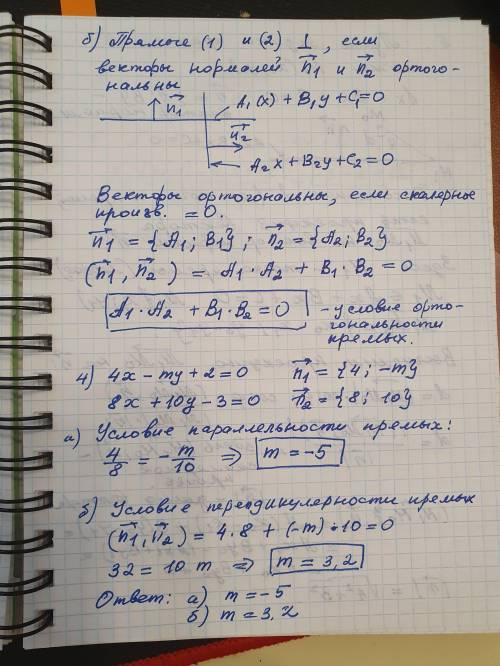 б) Прямые (1) и (2) ⊥, если
векторы нормалей n⃗1 и n⃗2 ортого-
нальны
n⃗1
A₁(x) + B₁y + C₁ = 0
n⃗2
A₂x + B₂y + C₂ = 0
Векторы ортогональны, если скалярное
произв. = 0.
n⃗1 = {A₁; B₁}; n⃗2 = {A₂; B₂}
(n⃗1, n⃗2) = A₁·A₂ + B₁·B₂ = 0
A₁·A₂ + B₁·B₂ = 0 - условие орто-
гональности
прямых.
4) 4x - my + 2 = 0 n⃗1 = {4; -m}
8x + 10y - 3 = 0 n⃗2 = {8; 10}
а) Условие параллельности прямых:
4/8 = -m/10 ⇒ m = -5
б) Условие перпендикулярности прямых
(n⃗1, n⃗2) = 4·8 + (-m)·10 = 0
32 = 10 m ⇒ m = 3,2
Ответ: а) m = -5
б) m = 3,2